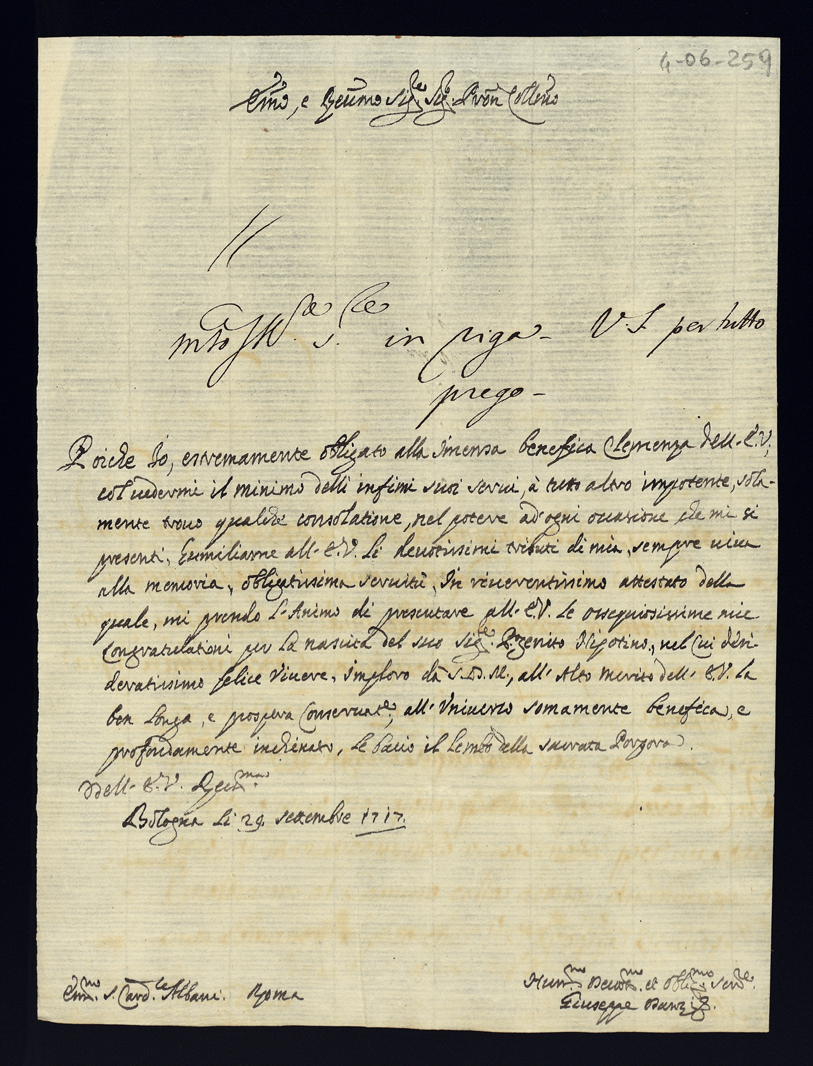 4-06-259
Emo, e Reumo Sig.re Sig.re Pron Collmo
in riga - V.S. per tutto
prego -
Poiche Io, estremamente obligato alla Imensa benefica Clemenza dell- E.V.,
col uedermi il minimo delli infimi suoi serui, à tutto altro impotente, sola-
mente trouo qualche consolatione, nel potere ad' ogni occasione che mi si
presenti, humiliarne all- E.V. li deuotissimi tributi di mia, sempre uiua
alla memoria, obligatissima seruitù, In riuerentissimo attestato della
quale, mi prendo L'Animo di presentare all- E.V. Le ossequiosissime mie
Congratulationi per La nascita del suo Sig.re Nipotino, nel Cui desi-
deratissimo felice Viuere, Imploro da S.D.M., all' Alto Merito dell- E.V. La
ben Longa, e prospera Conseruat.e, all' Vniuerso somamente benefica, e
profondamente inchinato, Le bacio il Lembo della sacrata Porpora.
Dell- E.V. Reu.ma
Bologna Li 29. settembre 1717.
Em.mo S. Card.le Albani. Roma
Hum.mo Deuot.mo et Obli.mo Seru.re
Giuseppe